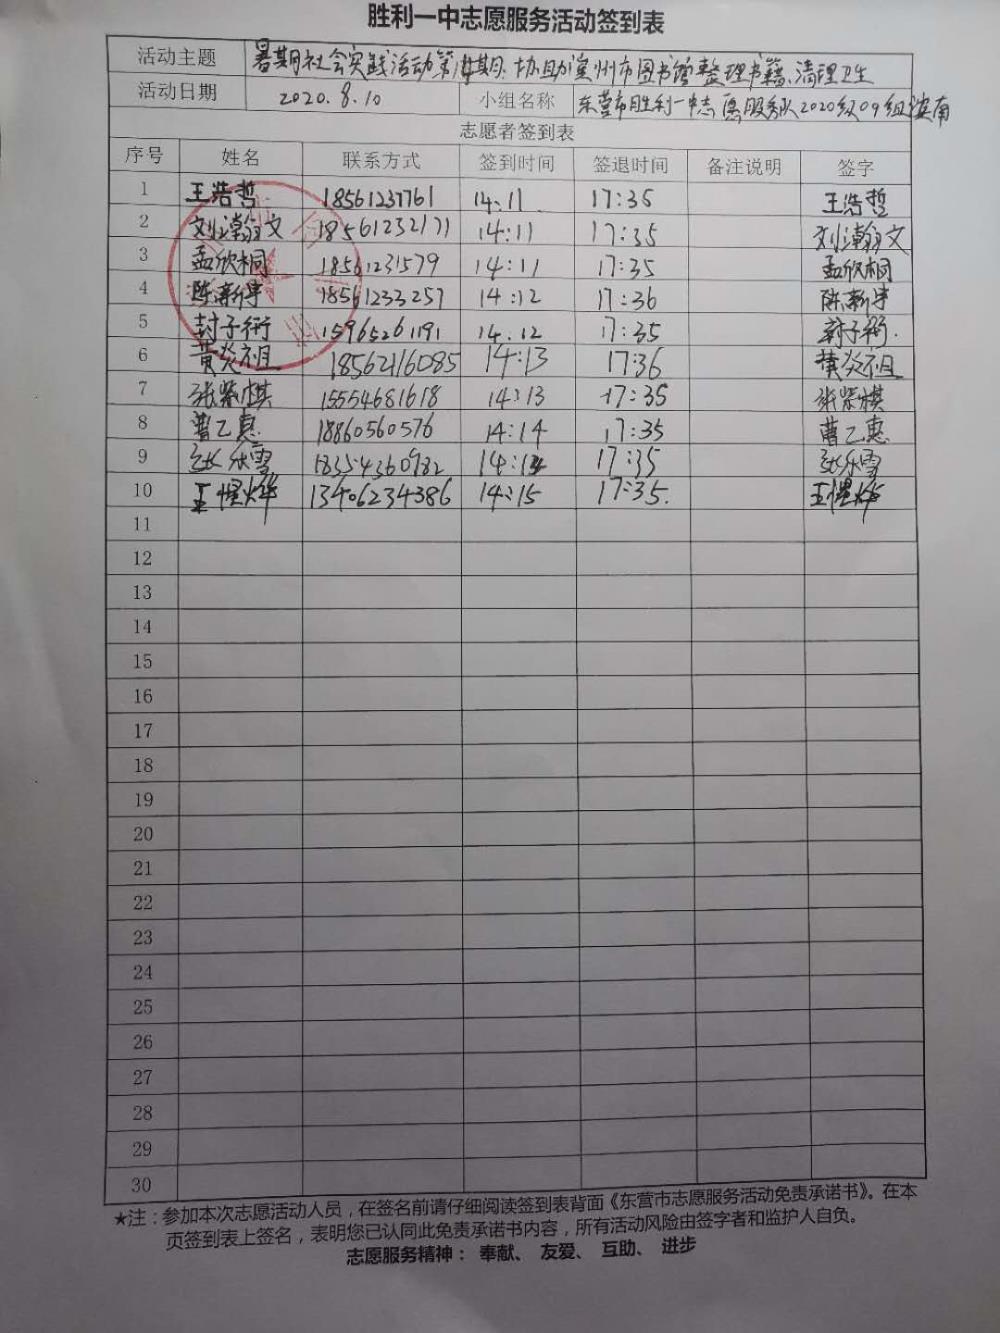 胜利一中志愿服务活动签到表
活动主题 暑期社会实践活动第 期：协助滨州市图书馆整理书籍、清理卫生
活动日期 2020.8.10 小组名称 东营市胜利一中志愿服务队2020级09组滨南
志愿者签到表
序号 姓名 联系方式 签到时间 签退时间 备注说明 签字
1 王浩哲 18561237761 14:11 17:35 王浩哲
2 刘瀚文 18561232171 14:11 17:35 刘瀚文
3 孟欣桐 18561231579 14:11 17:35 孟欣桐
4 陈新 18561233257 14:12 17:36 陈新
5 封子衎 15965261191 14:12 17:35 封子衎.
6 黄炎祖 18562116085 14:13 17:36 黄炎祖
7 张紫棋 15554681618 14:13 17:35 张紫棋
8 曹乙惠 18860560576 14:14 17:35 曹乙惠
9 张乐雪 18354360982 14:14 17:35 张乐雪
10 王惺烨 13406234386 14:15 17:35. 王惺烨
11
12
13
14
15
16
17
18
19
20
21
22
23
24
25
26
27
28
29
30
★注：参加本次志愿活动人员，在签名前请仔细阅读签到表背面《东营市志愿服务活动免责承诺书》。在本
页签到表上签名，表明您已认同此免责承诺书内容，所有活动风险由签字者和监护人自负。
志愿服务精神： 奉献、 友爱、 互助、 进步